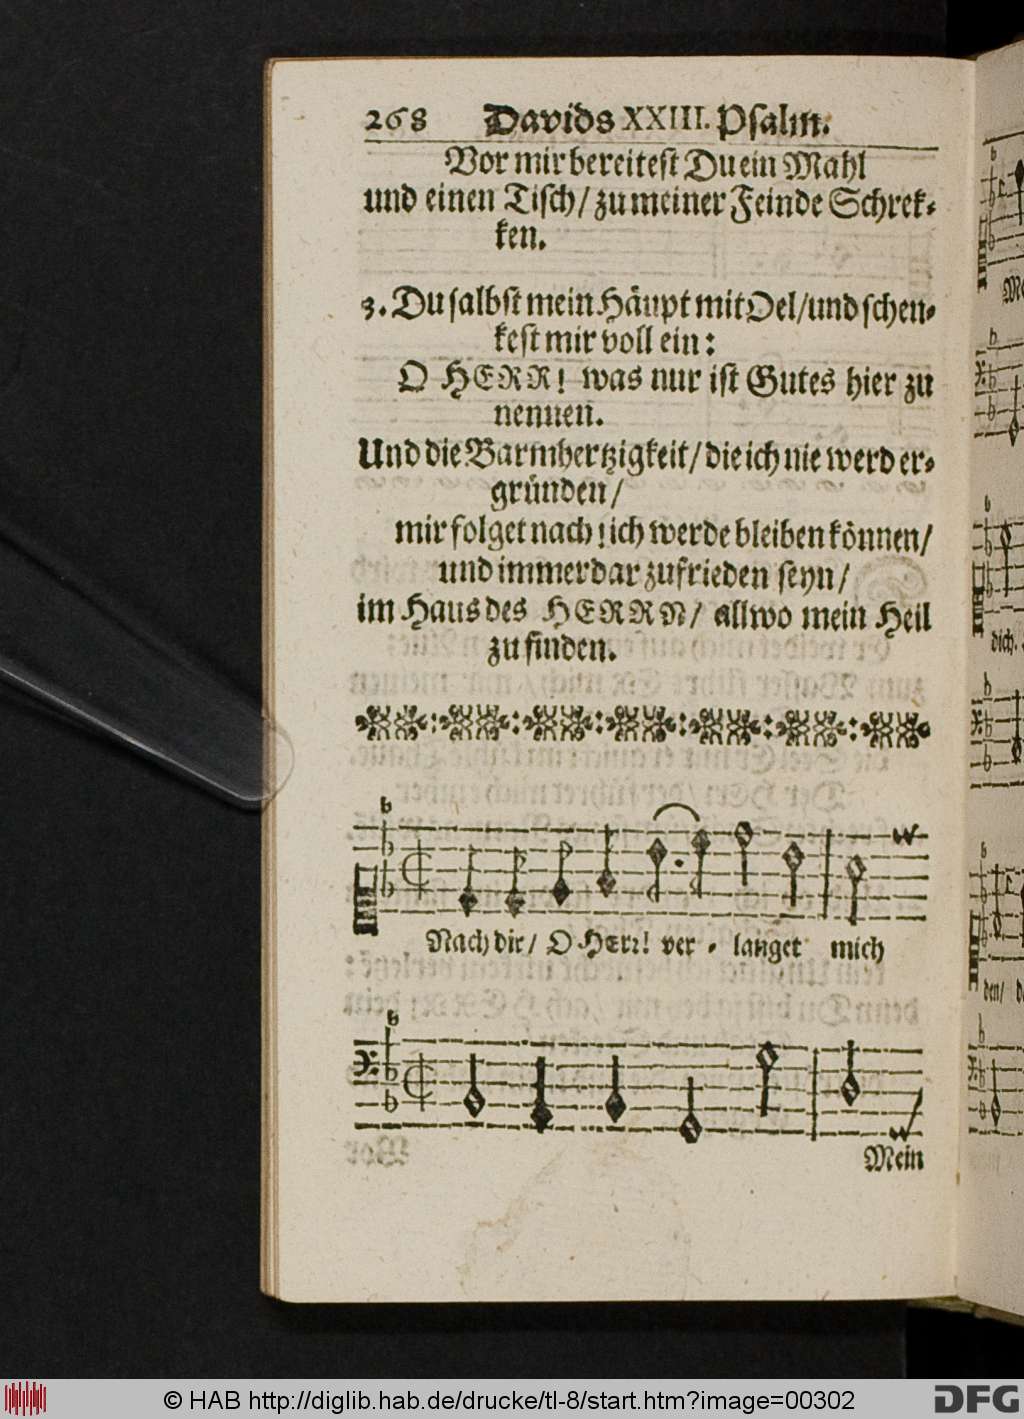 268 Davids XXIII. Psalm.
Vor mir bereitest Du ein Mahl
und einen Tisch / zu meiner Feinde Schrek-
ken.
3. Du salbst mein Häupt mit Oel / und schen-
kest mir voll ein:
O HERR! was nur ist Gutes hier zu
nennen.
Und die Barmhertzigkeit / die ich nie werd er-
gründen /
mir folget nach! ich werde bleiben können /
und immerdar zufrieden seyn /
im Haus des HERRN / allwo mein Heil
zu finden.
Nach dir / O HErr! ver - langet mich
Mein
© HAB http://diglib.hab.de/drucke/tl-8/start.htm?image=00302
DFG